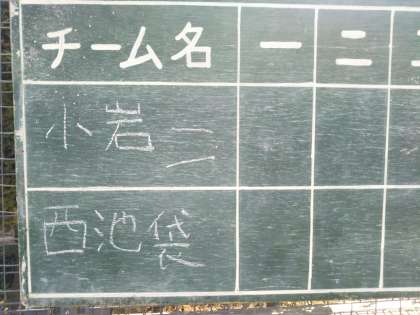 チーム名 一 二
小岩二
西池袋